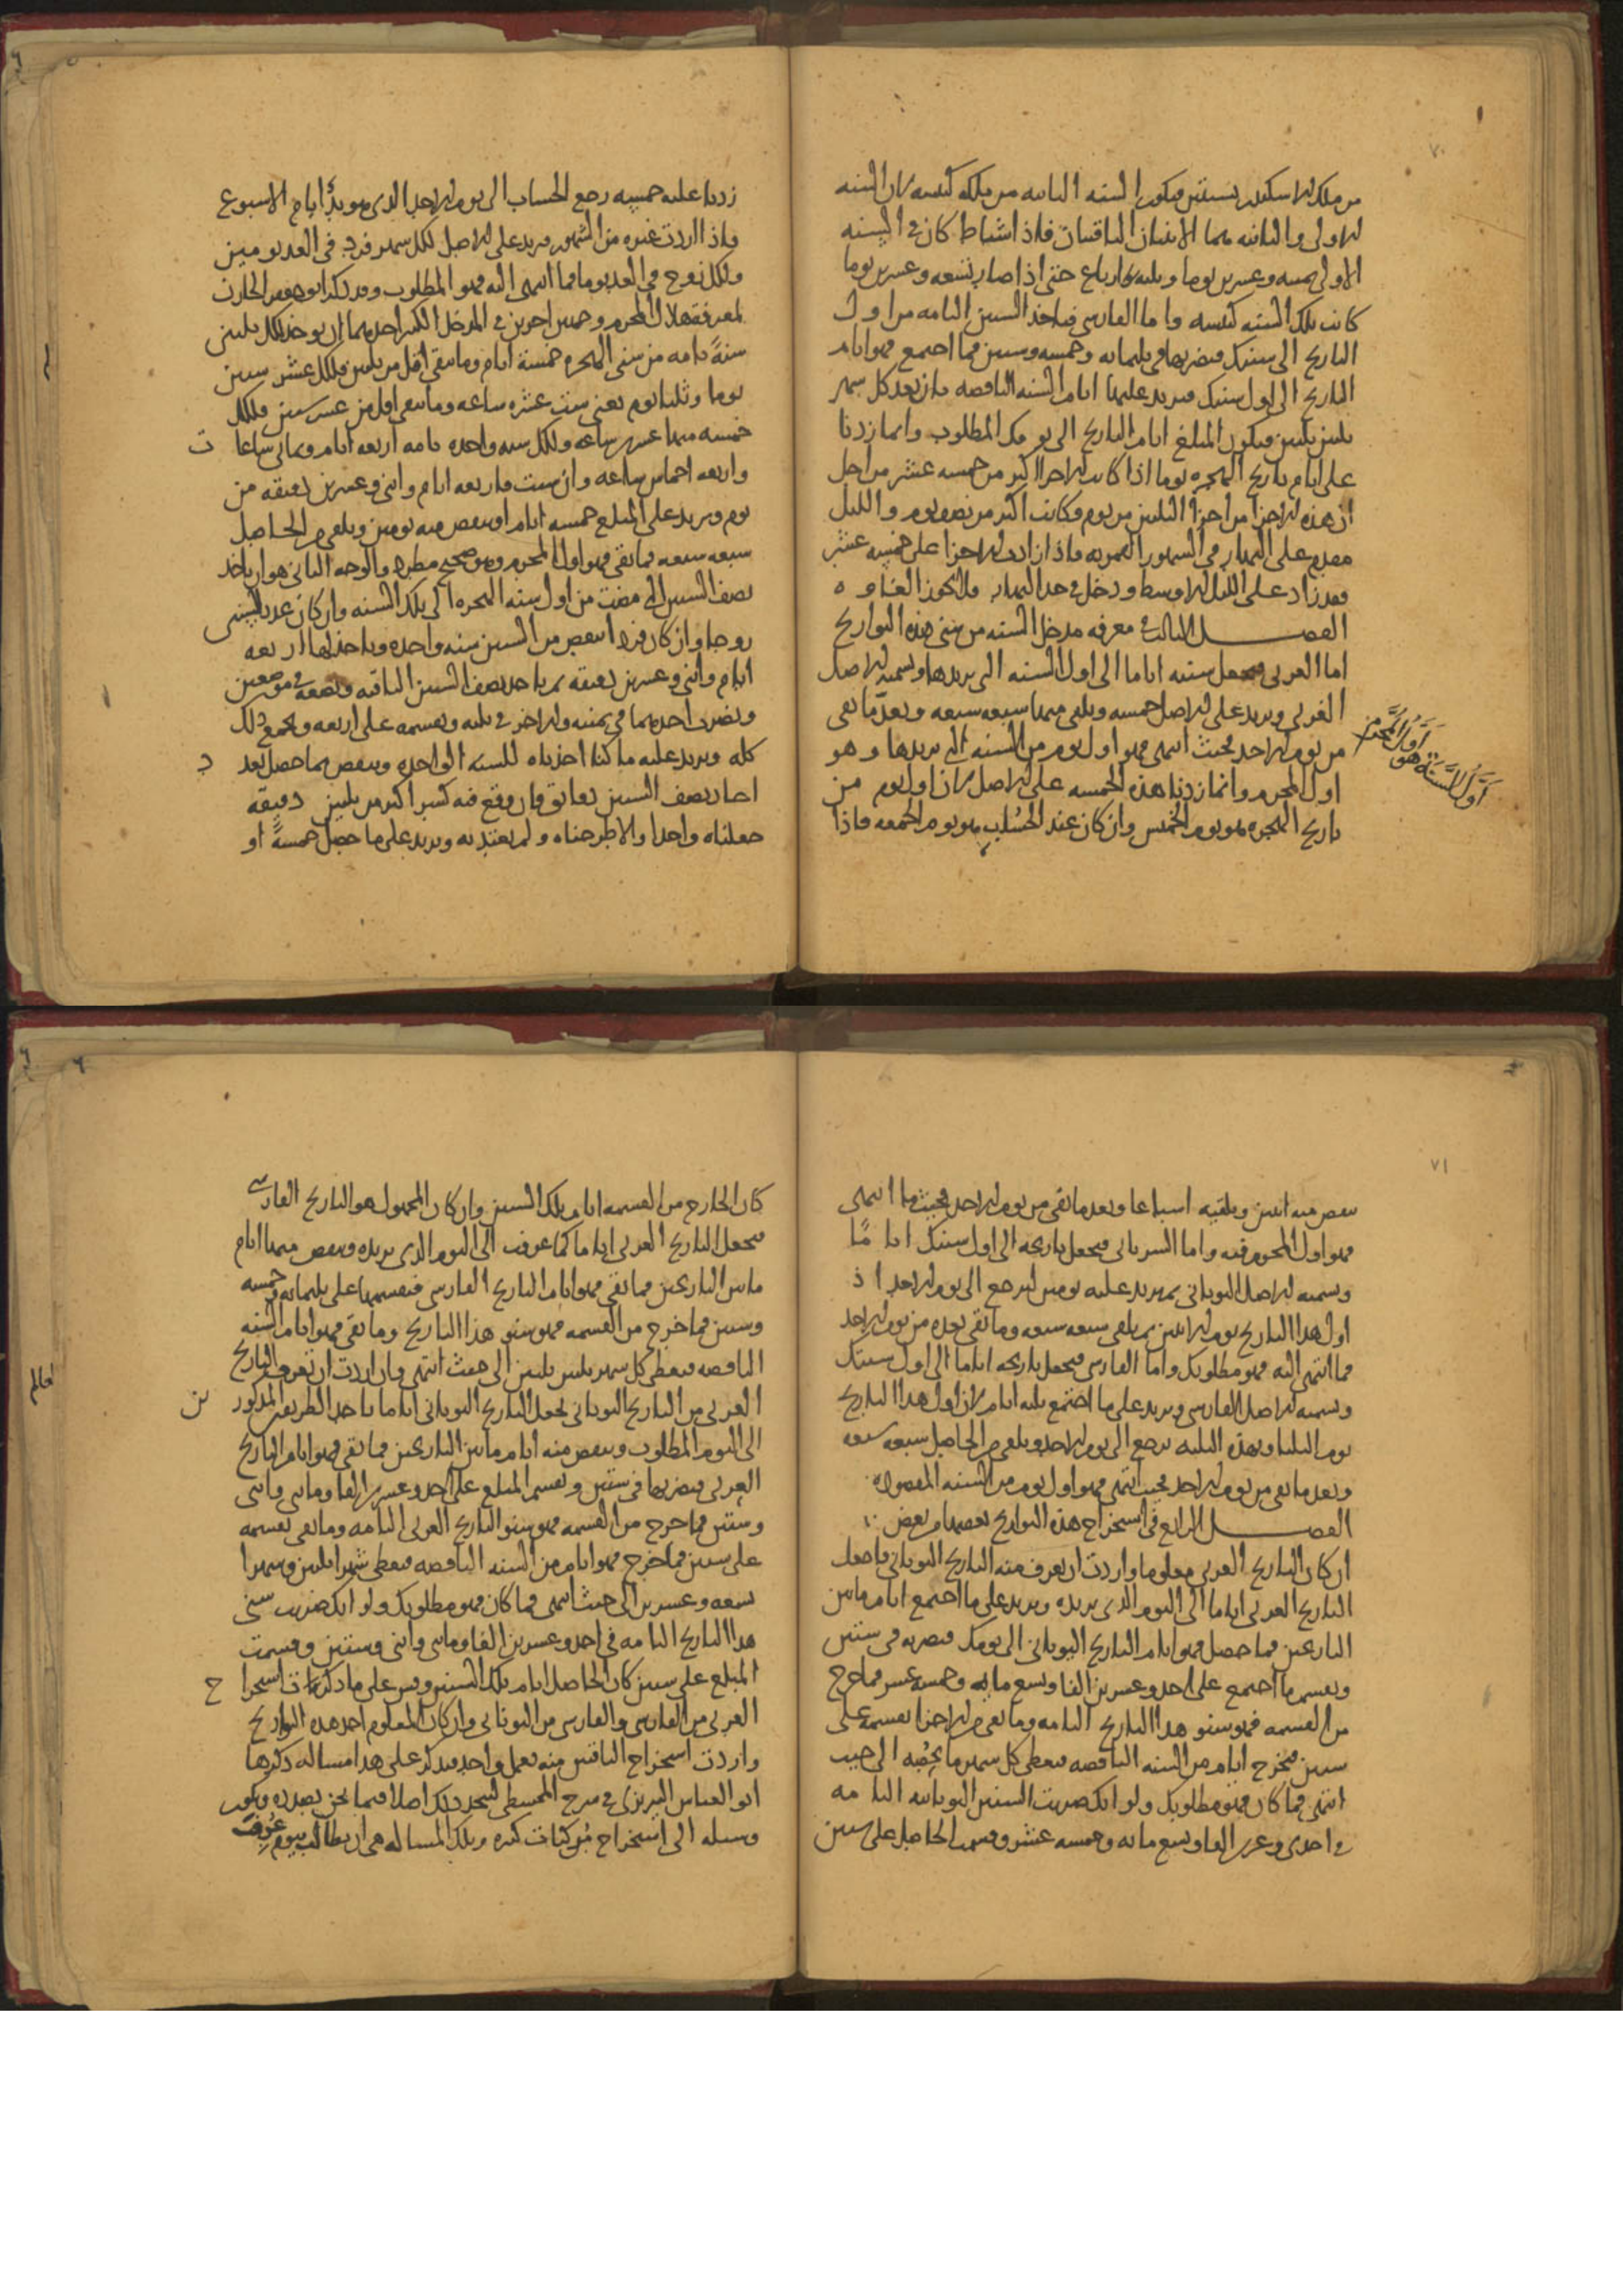 من ملك الاسكندر بسنتين فيكون السنه الثانيه من ملكه كبيسه لان السنه
الاولى والثانيه هما الاثنتان الباقيتان فاذا شباط كان في السنه
الاولى خمسه وعشرين يوما وثلثه ارباع حتى اذا صار تسعه وعشرين يوما
كانت تلك السنه كبيسه واما الفارسي فياخذ السنين التامه من اول
التاريخ الى سنتك فيضربها في ثلثمائه وخمسه وستين فما اجتمع فهو ايام
التاريخ الى اول سنتك فيزيد عليها ايام السنه الناقصه بان يعد كل شهر
ثلثين ثلثين فيكون المبلغ ايام التاريخ الى يومك المطلوب وانما زدنا
على ايام تاريخ الهجره يوما اذا كانت الاجزا اكثر من خمسه عشر من اجل
ان هذه الاجزا من اجزا الثلثين من يوم وكانت اكثر من نصف يوم والليل
مقدم على النهار في الشهور القمريه فاذا زادت الاجزا على خمسه عشر
فقد زاد على الليل الاوسط ودخل في حد النهار
الفصل الثالث في معرفه مدخل السنه من سني هذه التواريخ
اما العربي فيجعل سنته اياما الى اول السنه التي يريدها ويسميه الاصل
العربي ويزيد على الاصل خمسه ويلقي منها سبعه سبعه ويعد ما بقي
من يوم الاحد فحيث انتهى فهو اول يوم من السنه التي يريدها وهو
اول المحرم وانما زدنا هذه الخمسه على الاصل لان اول يوم من
تاريخ الهجره هو يوم الخميس وان كان عند الحساب هو يوم الجمعه فاذا
اول السنه هو اول المحرم
زدنا عليه خمسه رجع الحساب الى يوم الاحد الذي هو بدء ايام الاسبوع
واذا اردت غيره من الشهور فيزيد على الاصل لكل شهر فرد في العد يومين
ولكل زوج في العد يوما فما انتهى اليه فهو المطلوب وقد ذكر ابو
لمعرفه هلال المحرم وجهين اخرين في المدخل الكبير احدهما ان يوخذ لكل ثلثين
سنةً تامه من سني الهجره خمسة ايام وما بقي اقل من ثلثين فلكل عشر سنين
يوما وثلثا يوم يعني ست عشره ساعه وما بقي اقل من عشر سنين فلكل
خمسه منها عشرين ساعه ولكل سنه واحده تامه اربعه ايام وثماني ساعا ت
واربعه اخماس ساعه وان شيت فاربعه ايام واثني وعشرين دقيقه من
يوم ويزيد على المبلغ خمسه ايام او ينقص منه يومين ويلقي من الحاصل
سبعه سبعه فما بقي فهو اول المحرم وهو صحيح مطرد والوجه الثاني هو ان ياخذ
نصف السنين التي مضت من اول سنه الهجره الى تلك السنه وان كان عدد السنين
زوجا وان كان فردا انقص من السنين سنه واحده وياخذ لها اربعه
ايام واثني وعشرين دقيقه ثم ياخذ نصف السنين الباقيه ويضعه في موضعين
ويضرب احدهما في ثمنيه والاخر في ثلثه ويقسمه على اربعه ويجمع ذلك
كله ويزيد عليه ما كنا اخذناه للسنه الواحده وينقص مما حصل بعد د
اصار نصف السنين دقايق فان وقع فيه كسر اكثر من ثلثين دقيقه
جعلناه واحدا والا طرحناه ولم نعتد به ويزيد على ما حصل خمسةً او
ينقص منه اثنين ويلقيه اسباعا ويعد ما بقي من يوم الاحد فحيث ما انتهى
فهو اول المحرم فيه واما السرياني فيجعل تاريخه الى اول سنتك اياماً
ويسميه الاصل اليوناني ثم يزيد عليه يومين ليرجع الى يوم الاحد اذ
اول هذا التاريخ يوم الاثنين ثم يلقي سبعه سبعه وما بقي يعده من يوم الاحد
فما انتهى اليه فهو مطلوبك واما الفارسي فيجعل تاريخه اياما الى اول سنتك
ويسميه الاصل الفارسي ويزيد على ما اجتمع ثلثه ايام لان اول هذا التاريخ
يوم الثلثا وبهذه الثلثه يرجع الى يوم الاحد ويلقي من الحاصل سبعه سبعه
ويعد ما بقي من يوم الاحد فحيث انتهى فهو اول يوم من السنه المقصوده
الفصل الرابع في استخراج هذه التواريخ بعضها من بعض
ان كان التاريخ العربي معلوما واردت ان تعرف منه التاريخ اليوناني فاجعل
التاريخ العربي اياما الى اليوم الذي يريده ويزيد على ما اجتمع ايام ما بين
التاريخين فما حصل فهو ايام التاريخ اليوناني الى يومك فيضربه في ستين
ويقسم ما اجتمع على احد وعشرين الفا وتسع مايه وخمسه عشر فما خرج
من القسمه فهو سنو هذا التاريخ التامه وما بقي من الاجزا يقسمه على
ستين فيخرج ايام من السنه الناقصه فيعطي كل شهر ما يخُصّه الى حيث
انتهى فما كان فهو مطلوبك ولو انك ضربت السنين اليونانيه التامه
في احدى وعشرين الفا وتسع مايه وخمسه عشر وقسمت الحاصل على ستين
كان الخارج من القسمه ايام تلك السنين وان كان المجهول هو التاريخ الفارسي
فيجعل التاريخ العربي اياما كما عرفت الى اليوم الذي يريده وينقص منها ايام
ما بين التاريخين فما بقي فهو ايام التاريخ الفارسي فيقسمها على ثلثمائه وخمسه
وستين فما خرج من القسمه فهو سنو هذا التاريخ وما بقي فهو ايام السنه
الناقصه فيعطي كل شهر ثلثين ثلثين الى حيث انتهى وان اردت ان تعرف التاريخ
العربي من التاريخ اليوناني تجعل التاريخ اليوناني اياما باحد الطريقين المذكور ين
الى اليوم المطلوب وينقص منه ايام ما بين التاريخين فما بقي فهو ايام التاريخ
العربي فيضربها في ستين ويقسم المبلغ على احد وعشرين الفا ومايتي واثني
وستين فما خرج من القسمه فهو سنو التاريخ العربي التامه وما بقي يقسمه
على ستين فما خرج فهو ايام من السنه الناقصه فيعطي شهرا ثلثين وشهرا
تسعه وعشرين الى حيث انتهى فما كان فهو مطلوبك ولو انك ضربت سني
هذا التاريخ التامه في احد وعشرين الفا ومايتي واثني وستين وقسمت
المبلغ على ستين كان الحاصل ايام تلك السنين وقس على ما ذكرنا استخرا ج
العربي من الفارسي والفارسي من اليوناني وان كان المعلوم احد هذه التواريخ
واردت استخراج الباقيين منه بعمل واحد فيذكر على هذا مساله ذكرها
ابو العباس النيريزي في شرح المجسطي لتتخذ ذلك اصلا فيما نحن بصدده ويكون
وسيله الى استخراج مُركبات كثيره وتلك المساله هي ان يطالب بيوم عُرف